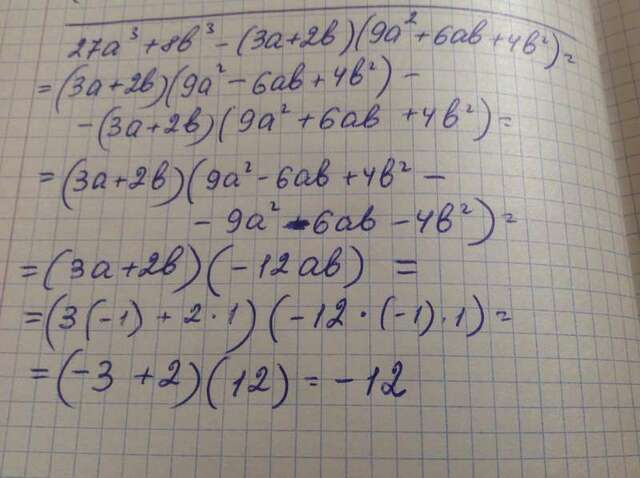 27a³+8b³-(3a+2b)(9a²+6ab+4b²)=
=(3a+2b)(9a²-6ab+4b²)-
-(3a+2b)(9a²+6ab+4b²)=
=(3a+2b)(9a²-6ab+4b²-
-9a²-6ab-4b²)=
=(3a+2b)(-12ab)=
=(3(-1)+2·1)(-12·(-1)·1)=
=(-3+2)(12)=-12